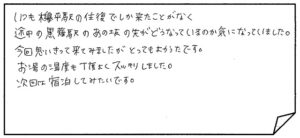 いつも欅平駅の往復でしか来たことがなく
途中の黒薙駅のあの坂の先がどうなっているのか気になっていました。
今回思いきって来てみましたがとってもよかったです。
お湯の温度も丁度よくスッキリしました。
次回は宿泊してみたいです。